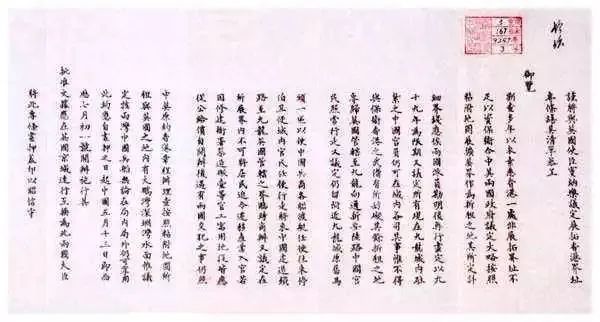 依議
謹將與英國使臣竇納樂議定展拓香港界址
專條繕具清單恭呈
御覽
溯查多年以來素悉香港一處非展拓界址不
足以資保衛今中英兩國政府議定大略按照
粘附地圖展擴英界作為新租之地其所定詳
細界綫應俟兩國派員勘明後再行畫定以九
十九年為限期又議定所有現在九龍城內駐
紮之中國官員仍可在城內各司其事惟不得
與保衛香港之武備有所妨礙其餘新租之地
專歸英國管轄至九龍向通新安陸路中國官
民照常行走又議定仍留附近九龍城原舊馬
頭一區以便中國兵商各船渡艇任便往來停
泊且便城內官民任便行走將來中國建造鐵
路至九龍英國管轄之界臨時商辦又議定在
所展界內不可將居民迫令遷移產業入官若
因修建衙署築造礮臺等官工需用地段皆應
從公給價自開辦後遇有兩國交犯之事仍照
中英原約香港章程辦理查按照粘附地圖所
租與英國之地內有大鵬灣深圳灣水面惟議
定該兩灣中國兵船無論在局內局外仍可享用
此約應自畫押之日起中國五月十三日即西
歷七月初一號開辦施行其
批准文據應在英國京城速行互換為此兩國大臣
將此專條畫押蓋印以昭信守